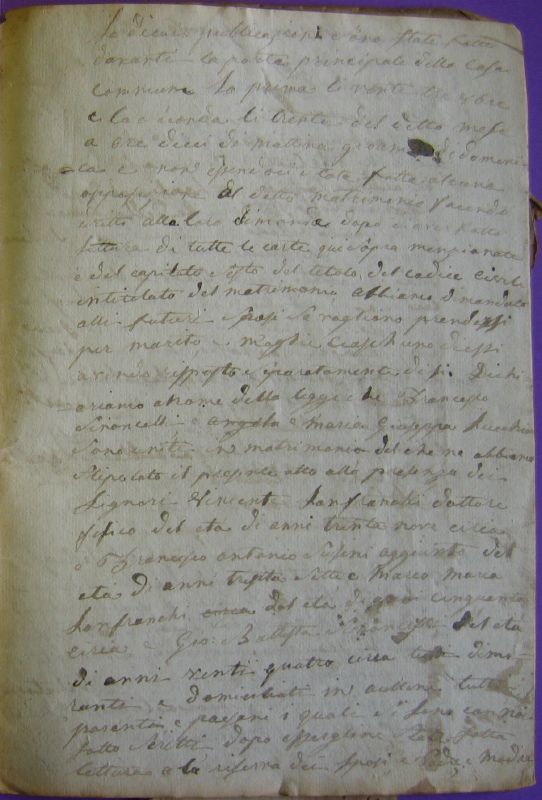 le dicui publicazioni e sono state fatte
davanti la porta principale della casa
commune la prima li venti tre
e la seconda li trenta del detto mese
a ore dieci da mattina giorni di domeni
ca e non essendoci stata fatta alcuna
opposizione al detto matrimonio facendo
dritto alla loro dimanda dopo aver fatto
lettura di tutte le carte qui sopra menzionate
e del capitolo sesto del titolo del codice civile
intitolato del matrimonio abbiamo dimandato
alli futuri sposi se vogliono prendersi
per marito e moglie ciascheuno di essi
avendo risposto separatamente di si Dichi
ariamo a nome della legge che Francesco
e angela e maria Giuseppa
sono uniti in matrimonio del che ne abbiamo
stipulato il presente atto alla presenza dei
Signori Vincente Lanfranchi dottore
fisico del eta di anni trenta nove circa
e Francesco antonio aggiunto del
eta di anni trenta sette e Marco Maria
Lanfranchi circa del eta di anni cinquanta
circa e Gio: Battista del eta
di anni venti quatro circa tutti dimo
ranti e domiciliati in aullene tutti
parenti e paesani i quali si sono
sotto scritti dopo essergliene stata fatta
lettura a la riserva dei sposi e padre e madre